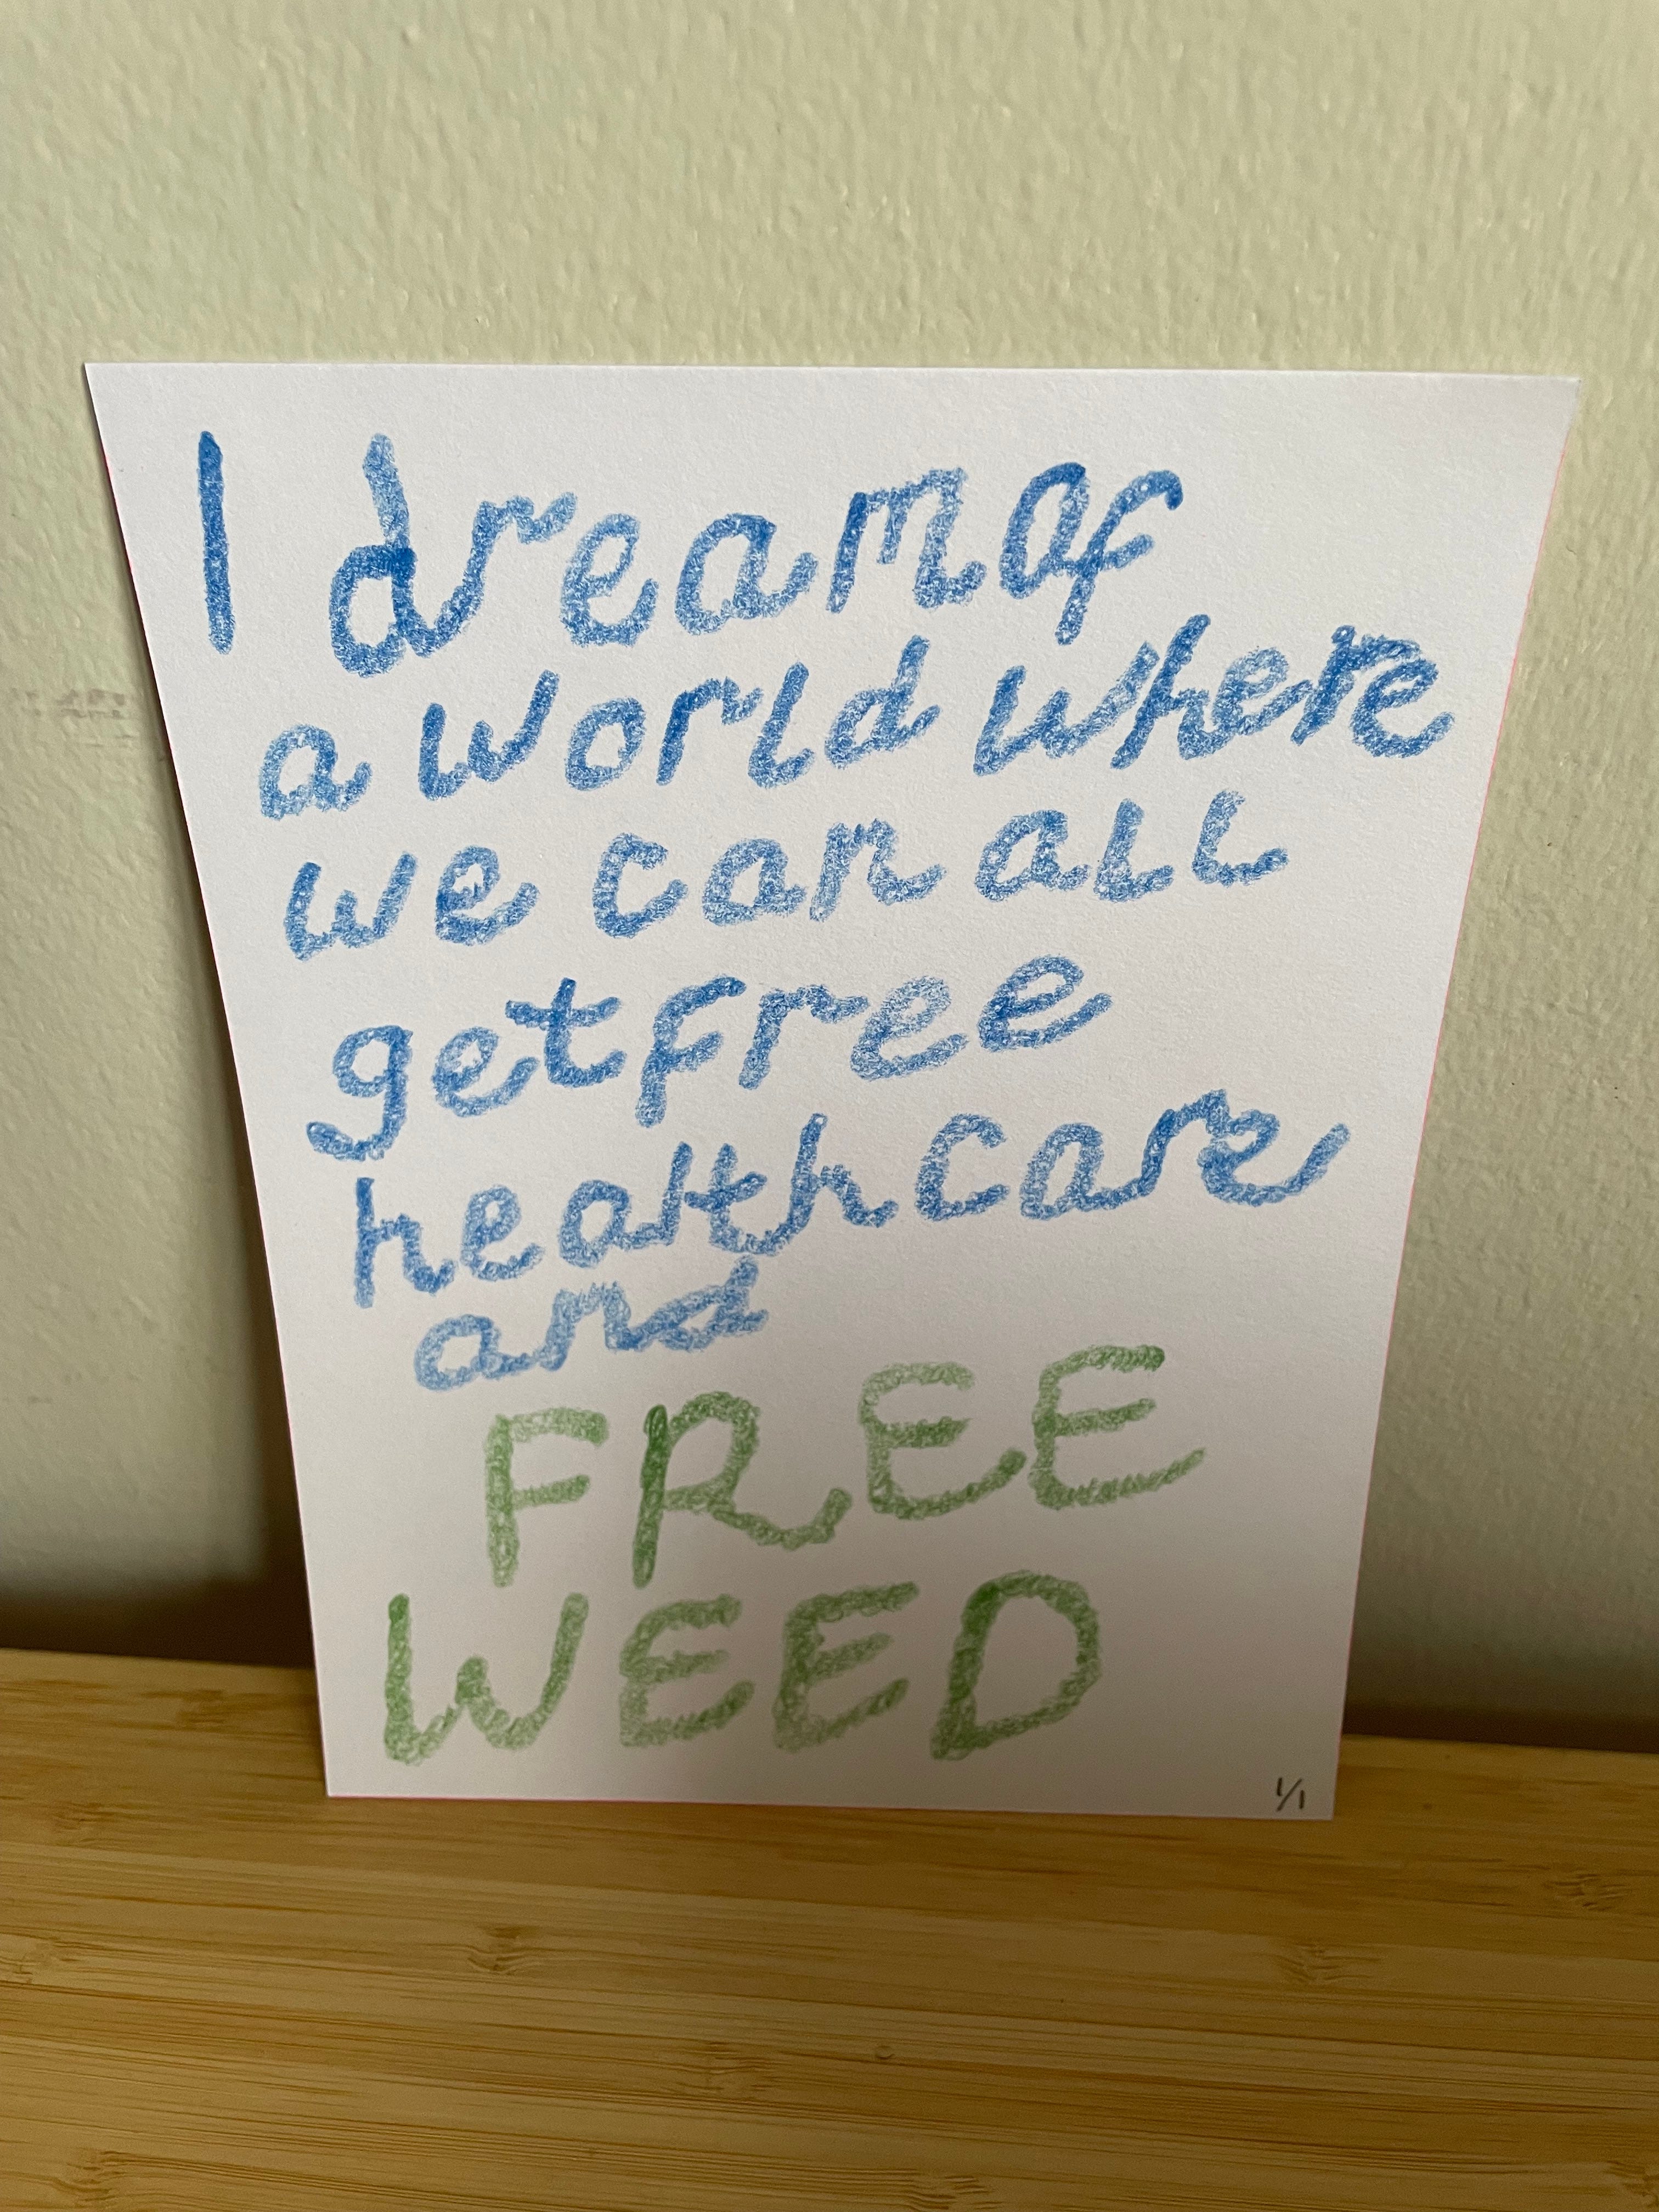 I dream of
a world where
we can all
get free
healthcare
and
FREE
WEED
1/1